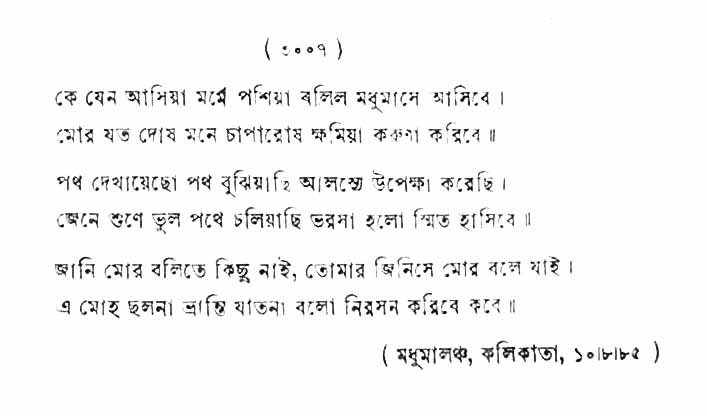 ( ৩০০৭ )
কে যেন আসিয়া মর্মে পশিয়া বলিল মধুমাসে আসিবে ।
মোর যত দোষ মনে চাপারোষ ক্ষমিয়া করুণা করিবে ॥
পথ দেখায়েছো পথ বুঝিয়াছি আলস্যে উপেক্ষা করেছি ।
জেনে শুণে ভুল পথে চলিয়াছি ভরসা হলো স্মিত হাসিবে ॥
জানি মোর বলিতে কিছু নাই, তোমার জিনিসে মোর বলে যাই ।
এ মোহ ছলনা ভ্রান্তি যাতনা বলো নিরসন করিবে কবে ॥
( মধুমালঞ্চ, কলিকাতা, ১০।৮।৮৫ )